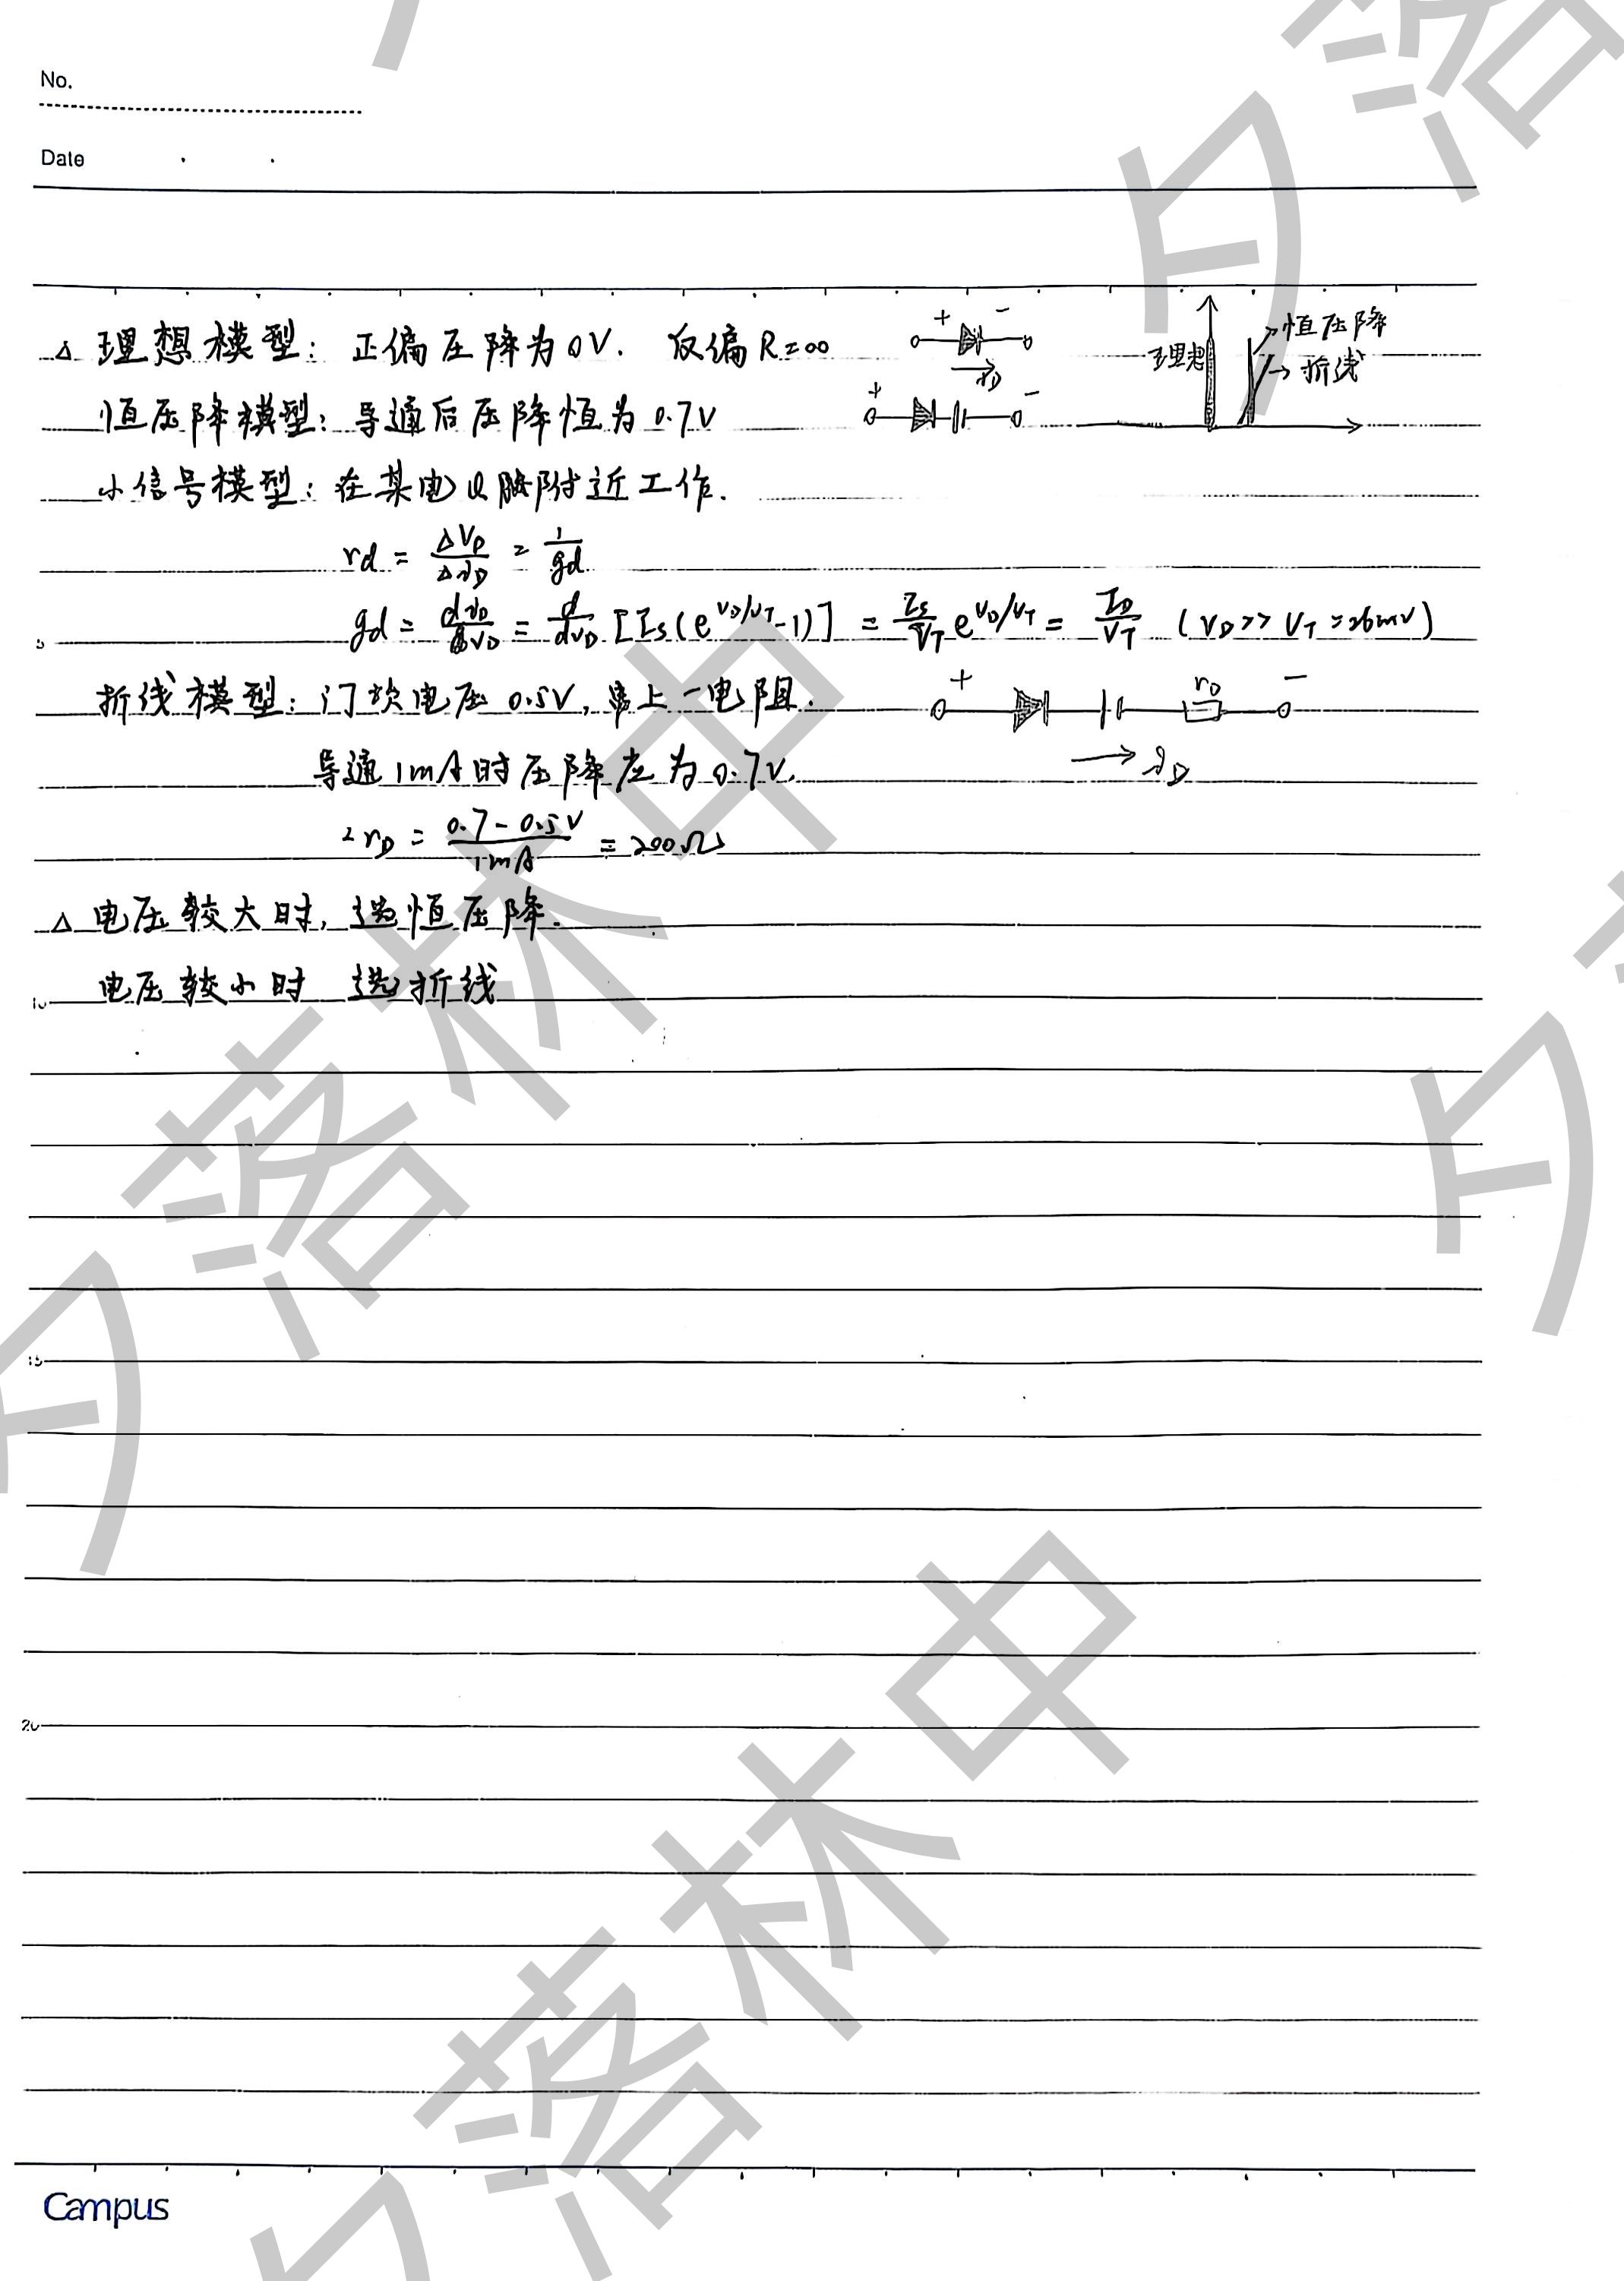 No.
Date
△ 理想模型：正偏压降为0V. 反偏R=∞
+ -
iD
理想
恒压降
折线
恒压降模型：导通后压降恒为0.7V
+ -
小信号模型：在某电附近工作.
rd = ΔVD/ΔiD = 1/gd
gd = diD/dvD = d/dvD [Is(e^{vD/vT}-1)] = Is/VT e^{vD/vT} = ID/VT (vD>>VT=26mV)
5
折线模型：门坎电压0.5V，串上一电阻.
+ rD -
iD
导通1mA时压降应为0.7V.
rD = (0.7-0.5V)/1mA = 200Ω
△ 电压较大时，选恒压降.
电压较小时 选折线
10
15
20
Campus
夕落林中
夕落林中
夕落
夕